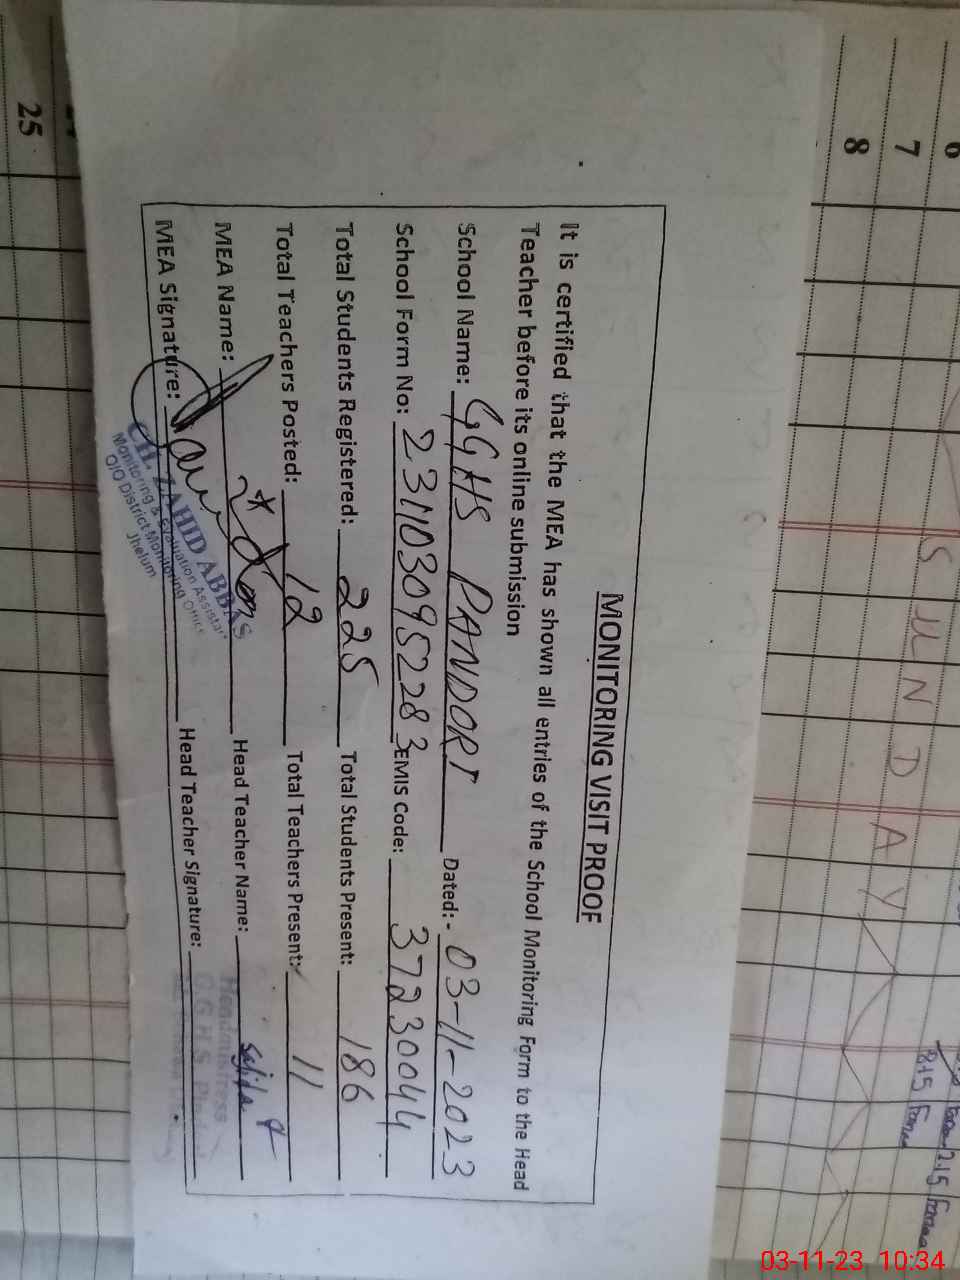 MONITORING VISIT PROOF
It is certified that the MEA has shown all entries of the School Monitoring Form to the Head
Teacher before its online submission
School Name: GGHS PANDORI Dated:- 03-11-2023
School Form No: 2311030952283 EMIS Code: 37230044
Total Students Registered: 225 Total Students Present: 186
Total Teachers Posted: 12 Total Teachers Present: 11
MEA Name: Head Teacher Name: Sajida
MEA Signature: Head Teacher Signature:
CH. ZAHID ABBAS
Monitoring & Evaluation Assistant
O/O District Monitoring Officer
Jhelum
Headmistress
G.G.H.S.
6
7
8
25
SUNDAY
8:15
2:15
03-11-23 10:34